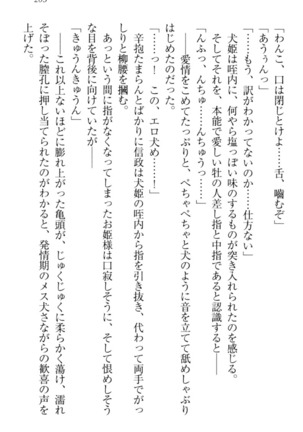 205
「わんこ、口は閉じとけよ……舌、噛むぞ」
「あうぅんっ」
「……もう、訳がわかってないのか……仕方ない」
　犬姫は咥内に、何やら塩っぽい味のするものが突き入れられたのを感じる。
　そしてそれを、本能で愛しい牡の人差し指と中指であると認識すると――
「んふっ、んちゅ……んちゅうっ……」
　――愛情をこめてたっぷりと、べちゃべちゃと犬のように音を立てて舐めしゃぶりはじめたのだった。
「このっ……！　この、エロ犬め……！」
　辛抱たまらんとばかりに信政は犬姫の咥内から指を引き抜き、代わって両手でがっしりと柳腰を掴む。
　あっという間に指がなくなったお姫様は口寂しそうに、そして恨めしそうな目を背後に向けていたが――
「きゅうんきゅうん」
　――これ以上ないほどに膨れ上がった亀頭が、じゅくじゅくに柔らかく蕩け、濡れそぼった膣孔に押し当てられたのがわかると、発情期のメス犬さながらの歓喜の声を上げた。